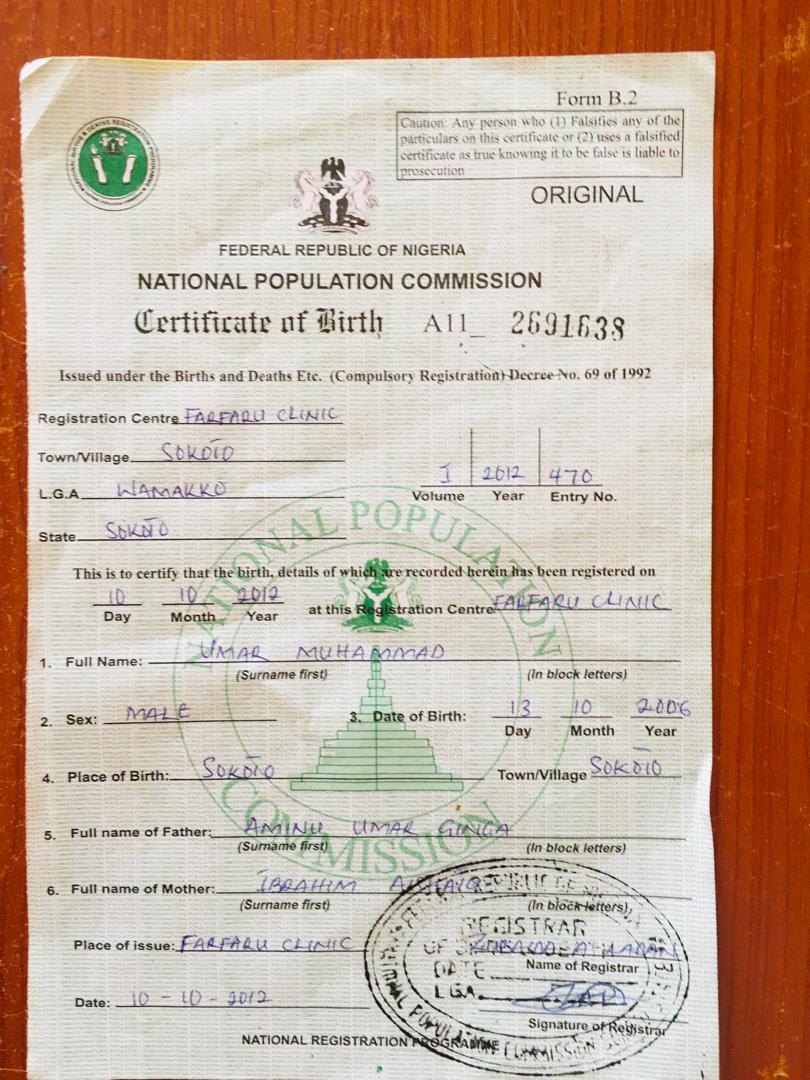 Form B.2
Caution: Any person who (1) Falsifies any of the
particulars on this certificate or (2) uses a falsified
certificate as true knowing it to be false is liable to
prosecution
ORIGINAL
FEDERAL REPUBLIC OF NIGERIA
NATIONAL POPULATION COMMISSION
Certificate of Birth A11_ 2691638
Issued under the Births and Deaths Etc. (Compulsory Registration) Decree No. 69 of 1992
Registration Centre FARFARU CLINIC
Town/Village SOKOTO
L.G.A WAMAKKO
I 2012 470
Volume Year Entry No.
State SOKOTO
NATIONAL POPULATION COMMISSION
This is to certify that the birth, details of which are recorded herein has been registered on
10 10 2012 at this Registration Centre FARFARU CLINIC
Day Month Year
1. Full Name: UMAR MUHAMMAD
(Surname first) (In block letters)
2. Sex: MALE 3. Date of Birth: 13 10 2006
Day Month Year
4. Place of Birth: SOKOTO Town/Village SOKOTO
5. Full name of Father: AMINU UMAR GINGA
(Surname first) (In block letters)
6. Full name of Mother: IBRAHIM
(Surname first) (In block letters)
REGISTRAR
Place of issue: FARFARU CLINIC
Name of Registrar
DATE
LGA
Date: 10-10-2012
Signature of Registrar
NATIONAL REGISTRATION PROGRAMME